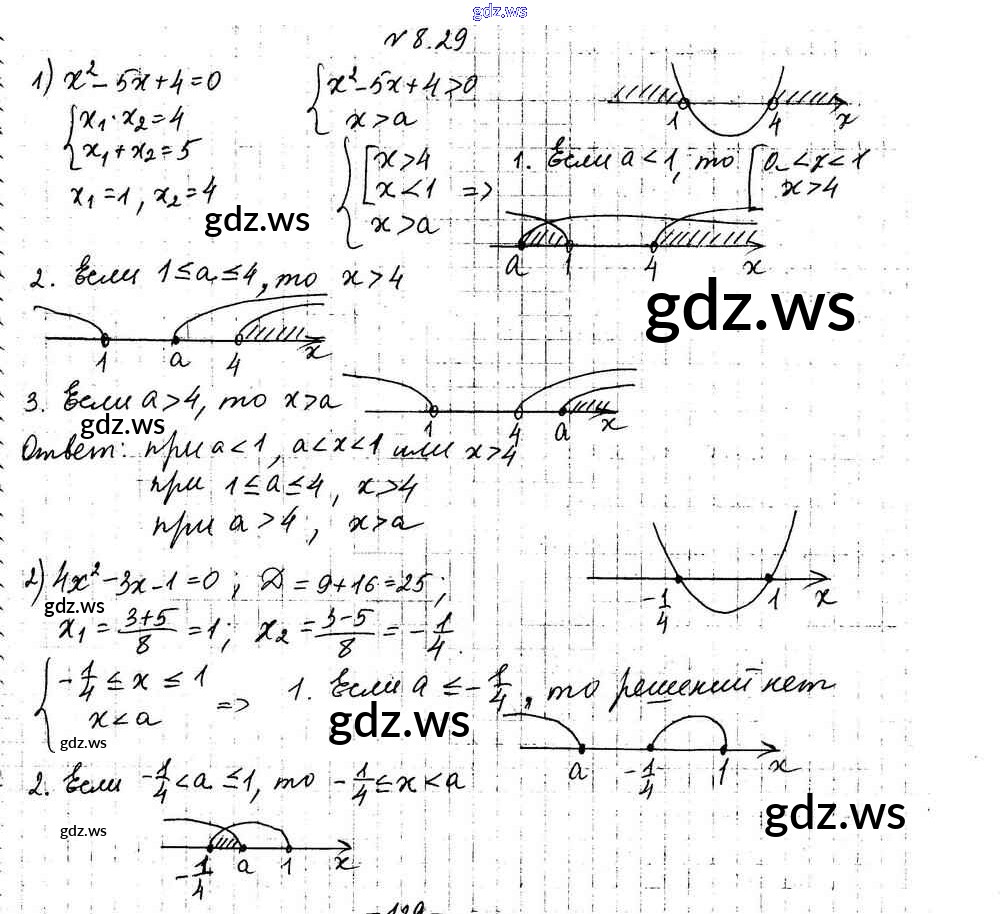 gdz.ws
№ 8.29
1) x² - 5x + 4 = 0
{ x₁ · x₂ = 4
x₁ + x₂ = 5
x₁ = 1, x₂ = 4
gdz.ws
{ x² - 5x + 4 > 0
x > a
{ [ x > 4
x < 1 =>
x > a
1 4 x
1. Если a < 1, то [ a < x < 1
x > 4
a 1 4 x
2. Если 1 ≤ a ≤ 4, то x > 4
gdz.ws
1 a 4 x
3. Если a > 4, то x > a
gdz.ws
1 4 a x
Ответ: при a < 1, a < x < 1 или x > 4
при 1 ≤ a ≤ 4, x > 4
при a > 4, x > a
2) 4x² - 3x - 1 = 0; D = 9 + 16 = 25;
gdz.ws
x₁ = (3+5)/8 = 1; x₂ = (3-5)/8 = -1/4.
-1/4 1 x
{ -1/4 ≤ x ≤ 1
x < a =>
1. Если a ≤ -1/4, то решений нет
gdz.ws
gdz.ws
a -1/4 1 x
2. Если -1/4 < a ≤ 1, то -1/4 ≤ x < a
gdz.ws
gdz.ws
-1/4 a 1 x
- 129 -